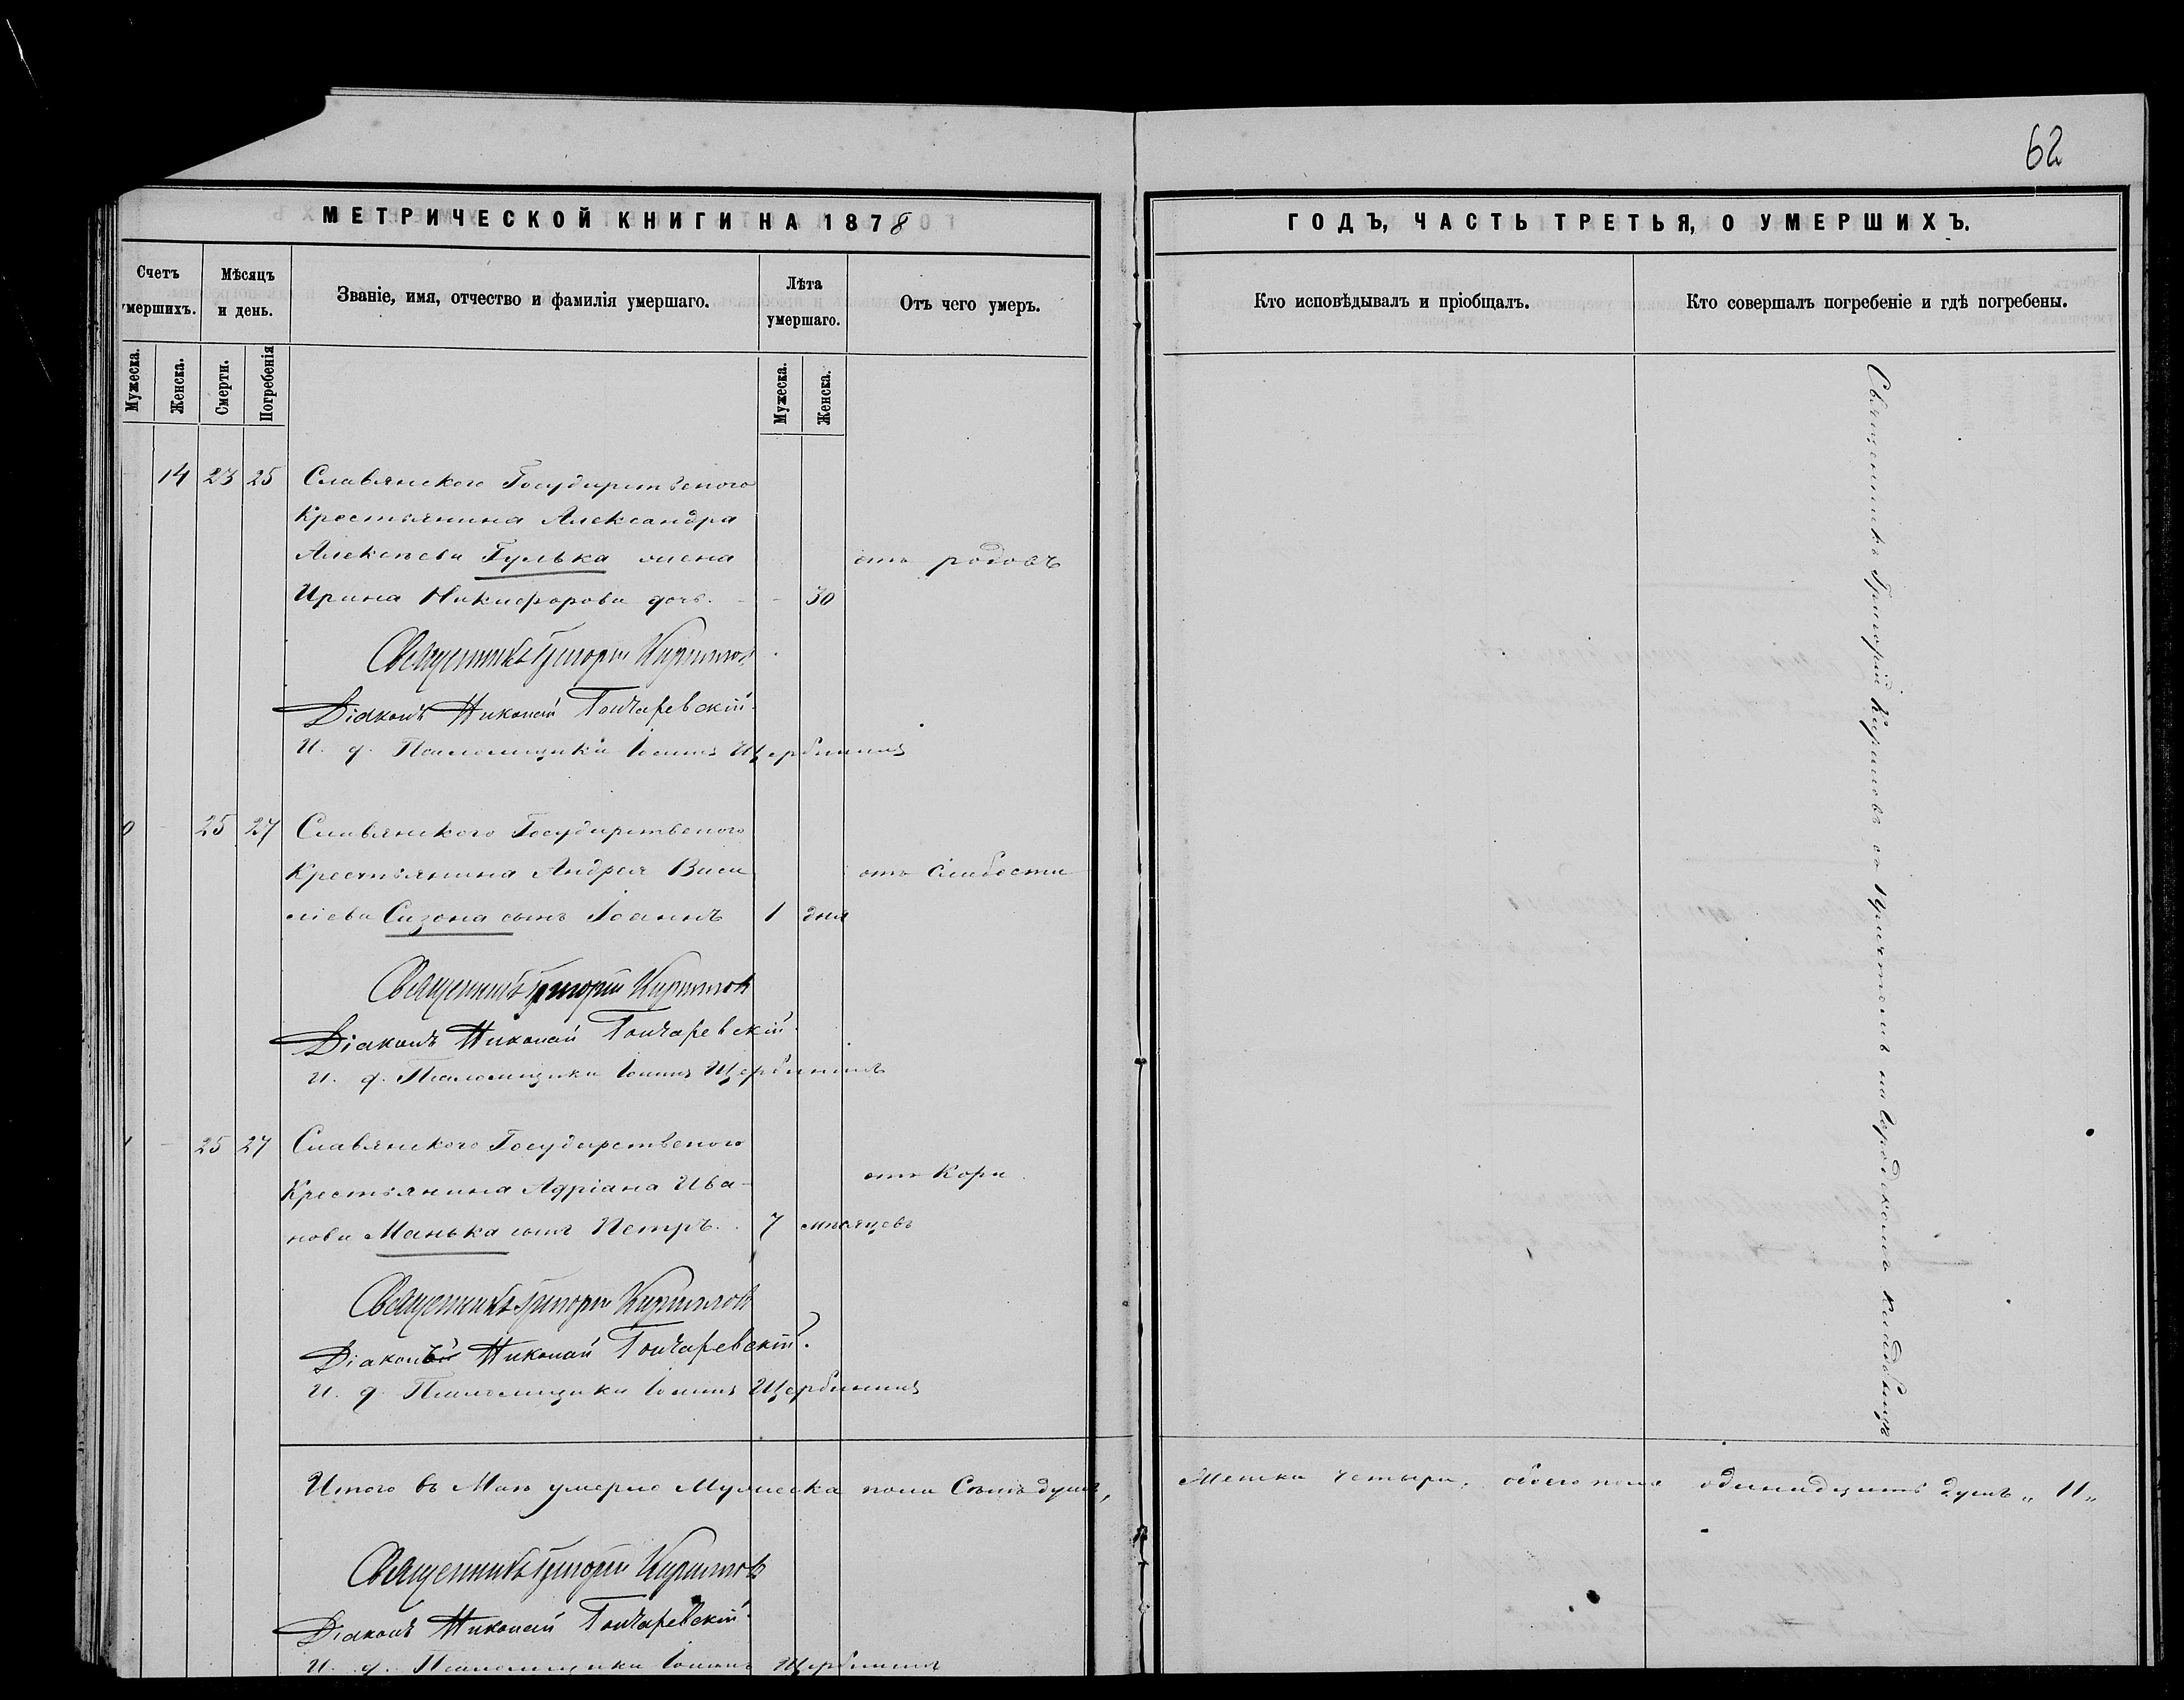 62
МЕТРИЧЕСКОЙ КНИГИ НА 1878
ГОДЪ, ЧАСТЬ ТРЕТЬЯ, О УМЕРШИХЪ.
Счетъ умершихъ.
Мѣсяцъ и день.
Званіе, имя, отчество и фамилія умершаго.
Лѣта умершаго.
Отъ чего умеръ.
Кто исповѣдывалъ и пріобщалъ.
Кто совершалъ погребеніе и гдѣ погребены.
Мужеска.
Женска.
Смерти.
Погребенія
Мужеска.
Женска.
14 23 25 Славянского Государственого
Крестьянина Александра
Алексѣева Гулька жена отъ родовъ
Ирина Никифорова дочь. - - 30
Священникъ Григорій Кириловъ
Діаконъ Николай Гончаревскій.
И. д. Псаломщика Іоаннъ Щербининъ
0 - 25 27 Славянского Государственого
Крестьянина Андрея Васи отъ слабости
ліева Сизона сынъ Іоаннъ 1 дня
Священникъ Григорій Кириловъ
Діаконъ Николай Гончаревскій.
И. д. Псаломщика Іоаннъ Щербининъ
1 - 25 27 Славянского Государственого
Крестьянина Адріана Ива- отъ Кори
нова Манька сынъ Петръ. 7 мѣсяцевъ
Священникъ Григорій Кириловъ
Діаконъ Николай Гончаревскій.
И. д. Псаломщика Іоаннъ Щербининъ
Священникъ Григорій Кириловъ со Причтомъ на Городскомъ кладбищѣ
Итого въ Маѣ умерло Мужеска пола Семь душъ, Женска четыри, обоего пола одинадцать душъ „ 11 „
Священникъ Григорій Кириловъ
Діаконъ Николай Гончаревскій.
И. д. Псаломщика Іоаннъ Щербининъ